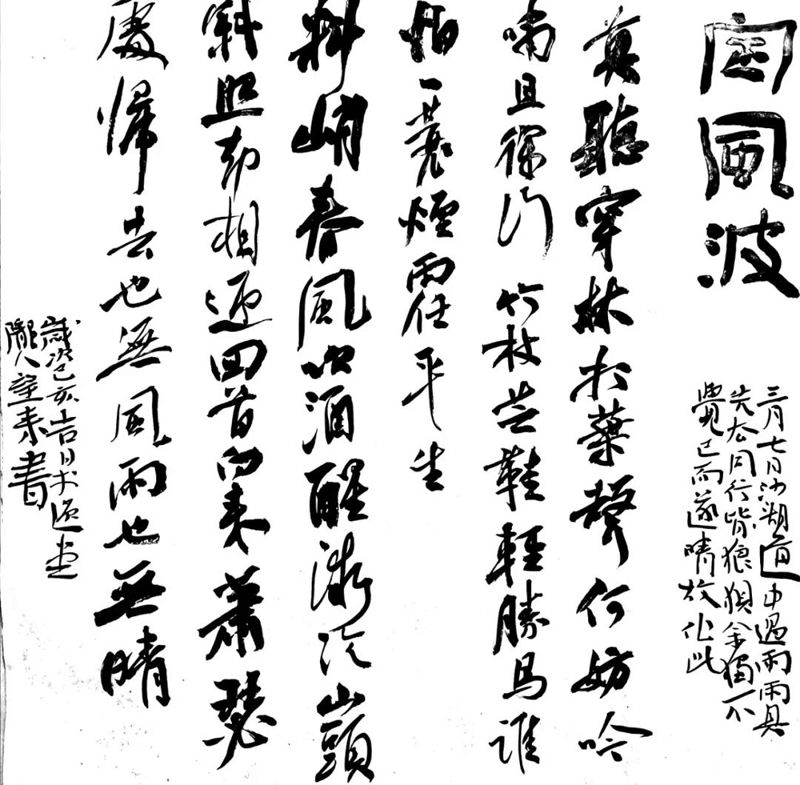 定風波
三月七日沙湖道中遇雨雨具
先去同行皆狼狽余獨不
覺已而遂晴故作此
莫聽穿林打葉聲何妨吟
嘯且徐行竹杖芒鞋輕勝馬誰
怕一蓑煙雨任平生
料峭春風吹酒醒微冷山頭
斜照却相迎回首向來蕭瑟
處歸去也無風雨也無晴
歲次己亥吉日堂
隴人望來書